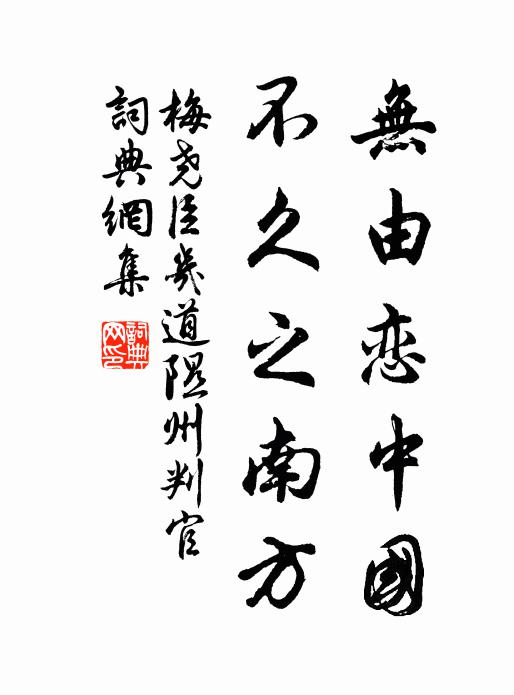 無由恋中國
不久之南方
梅尭臣幾道隰州判官
詞典網集
詞典網印